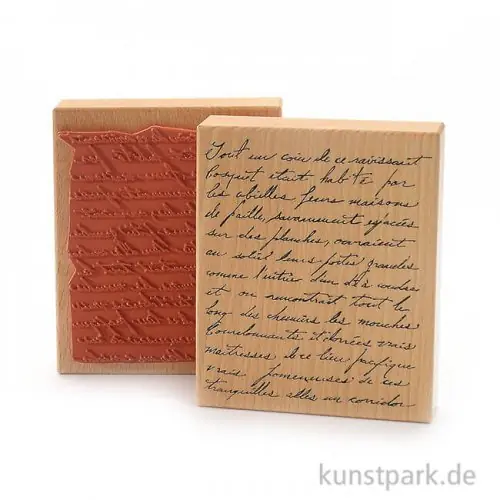 Tout un coin de ce ravissant
bosquet était habité par
les abeilles leurs maisons
de paille, savamment espacées
sur des planches, ouvraient
au soleil leurs portes grandes
comme l'entrée d'un dés coudas
et on rencontrait tout le
long des chemins les mouches
bourdonnants et dorées vrais
maîtresses de ce lieu pacifique
vrais promeneuses de ces
tranquilles alles un corridor
kunstpark.de